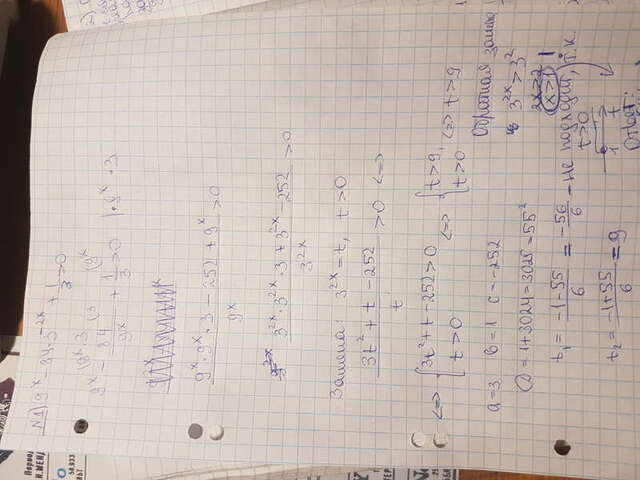 №1) 9^x - 84·3^{-2x} + 1/3 > 0
9^x - 84/9^x + 1/3 > 0 | · 9^x · 3
(9^x·3 (3 (9^x
9^x·9^x·3 - 252 + 9^x / 9^x > 0
3^{2x}·3^{2x}·3 + 3^{2x} - 252 / 3^{2x} > 0
Замена: 3^{2x} = t, t > 0
3t² + t - 252 / t > 0 <=>
<=> { 3t² + t - 252 > 0 t > 0 <=> { t > 9, t > 0 <=> t > 9
a = 3 b = 1 c = -252
Обратная замена
3^{2x} > 3²
2x > 2
x > 1
D = 1 + 3024 = 3025 = 55²
t₁ = -1-55 / 6 = -56/6 - не подходит, т.к. t > 0
t₂ = -1+55 / 6 = 9
1 t
Ответ: